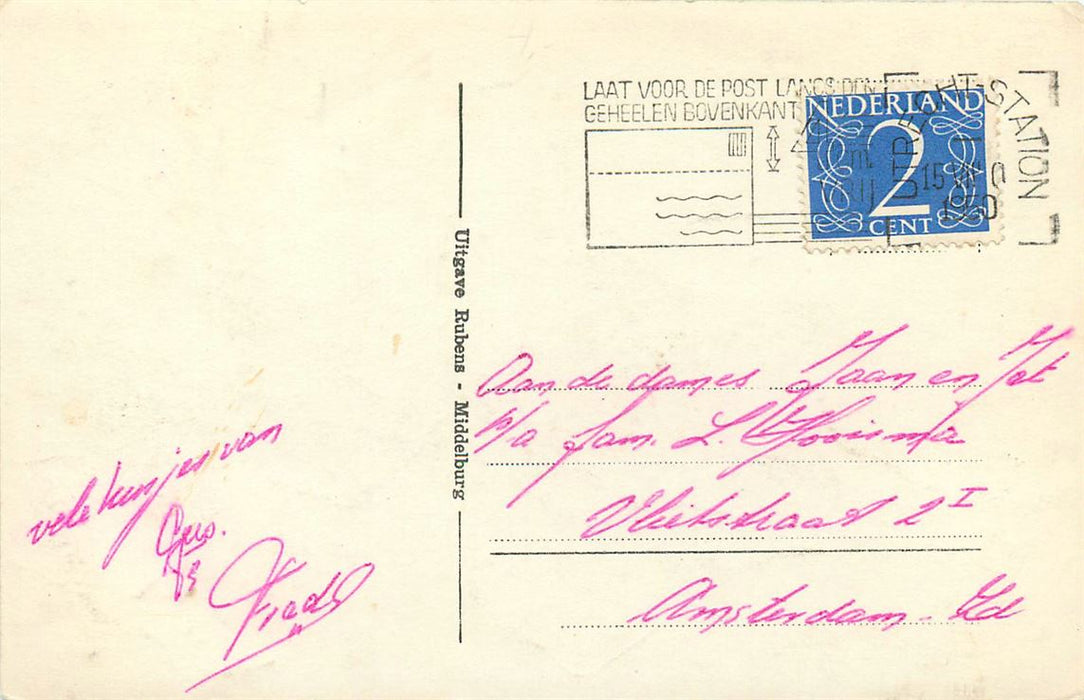 LAAT VOOR DE POST LANGS DEN
GEHEELEN BOVENKANT
NEDERLAND
2
CENT
UTRECHT-STATION
15
Uitgave Rubens - Middelburg
Aan de dames Jaan en Jet
p/a fam. L. Hooisma
Vlietstraat 2 I
Amsterdam-Zd
vele kusjes van